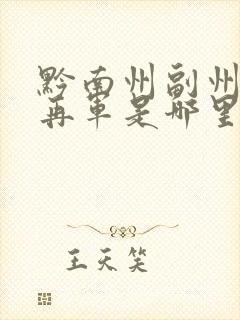 黔南州副州
再军是哪里
王天笑